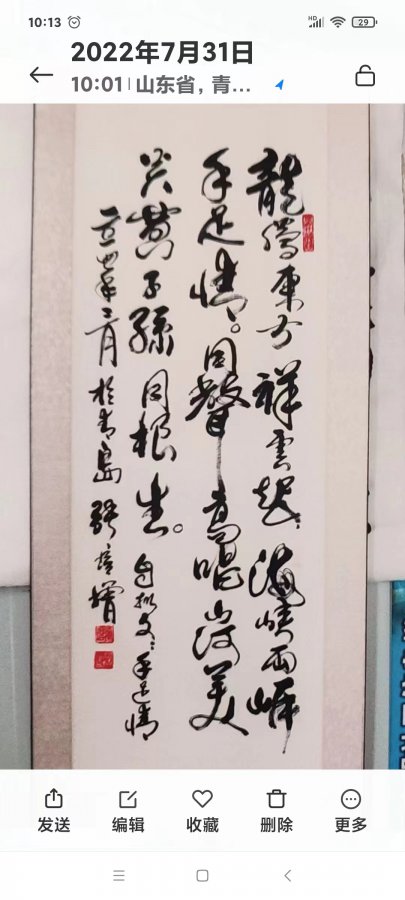 10:13
HD
29
2022年7月31日
10:01 | 山东省，青...
龍騰東方祥雲起，海峽兩岸
手足情。同聲高唱山河美
炎黄子孫同根生。自拟文：手足情
年二月於青島 張培
发送
编辑
收藏
删除
更多